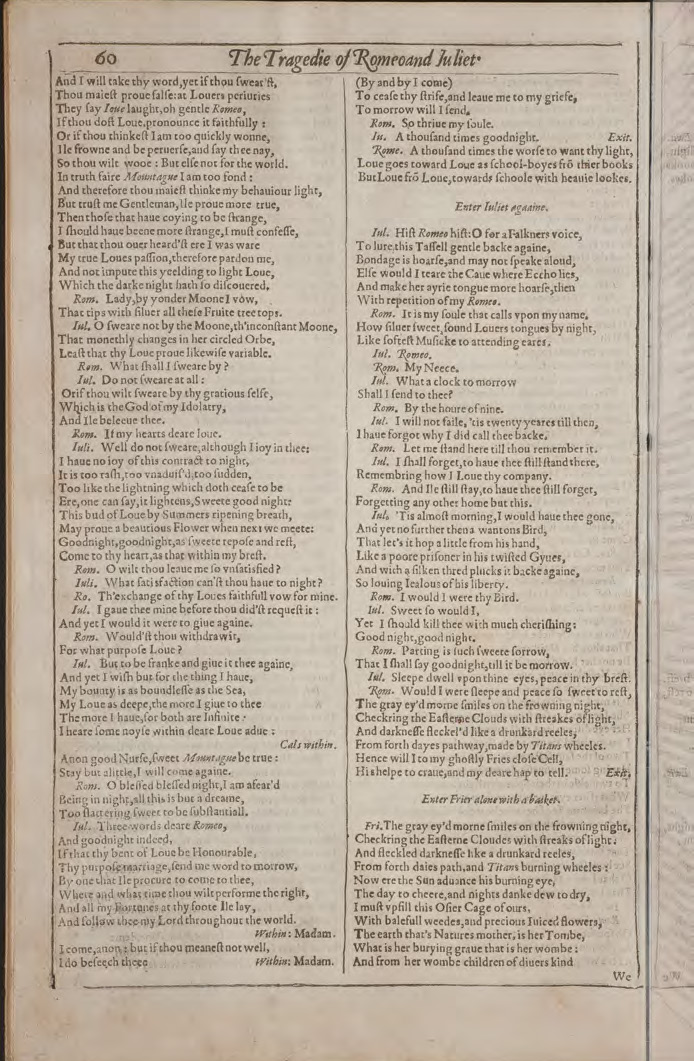 60
The Tragedie of Romeo and Iuliet.
And I will take thy word, yet if thou swear'st,
Thou maiest proue false: at Louers periuries
They say Ioue laught, oh gentle Romeo,
If thou dost Loue, pronounce it faithfully:
Or if thou thinkest I am too quickly wonne,
Ile frowne and be peruerse, and say thee nay,
So thou wilt wooe: But else not for the world.
In truth faire Mountague I am too fond:
And therefore thou maiest thinke my behauiour light,
But trust me Gentleman, Ile proue more true,
Then those that haue coying to be strange,
I should haue beene more strange, I must confesse,
But that thou ouer heard'st ere I was ware
My true Loues passion, therefore pardon me,
And not impute this yeelding to light Loue,
Which the darke night hath so discouered.
Rom. Lady, by yonder Moone I vow,
That tips with siluer all these Fruite tree tops.
Iul. O sweare not by the Moone, th'inconstant Moone,
That monethly changes in her circled Orbe,
Least that thy Loue proue likewise variable.
Rom. What shall I sweare by?
Iul. Do not sweare at all:
Or if thou wilt sweare by thy gratious selfe,
Which is the God of my Idolatry,
And Ile beleeue thee.
Rom. If my hearts deare loue.
Iuli. Well do not sweare, although I ioy in thee:
I haue no ioy of this contract to night,
It is too rash, too vnaduis'd, too sudden,
Too like the lightning which doth cease to be
Ere, one can say, it lightens, Sweete good night:
This bud of Loue by Summers ripening breath,
May proue a beautious Flower when next we meete:
Goodnight, goodnight, as sweete repose and rest,
Come to thy heart, as that within my brest.
Rom. O wilt thou leaue me so vnsatisfied?
Iuli. What satisfaction can'st thou haue to night?
Ro. Th'exchange of thy Loues faithfull vow for mine.
Iul. I gaue thee mine before thou did'st request it:
And yet I would it were to giue againe.
Rom. Would'st thou withdraw it,
For what purpose Loue?
Iul. But to be franke and giue it thee againe,
And yet I wish but for the thing I haue,
My bounty is as boundlesse as the Sea,
My Loue as deepe, the more I giue to thee
The more I haue, for both are Infinite:
I heare some noyse within deare Loue adue:
Cals within.
Anon good Nurse, sweet Mountague be true:
Stay but a little, I will come againe.
Rom. O blessed blessed night, I am afear'd
Being in night, all this is but a dreame,
Too flattering sweet to be substantiall.
Iul. Three words deare Romeo,
And goodnight indeed,
If that thy bent of Loue be Honourable,
Thy purpose marriage, send me word to morrow,
By one that Ile procure to come to thee,
Where and what time thou wilt performe the right,
And all my Fortunes at thy foote Ile lay,
And follow thee my Lord throughout the world.
Within: Madam.
I come, anon: but if thou meanest not well,
I do beseech thee Within: Madam.
(By and by I come)
To cease thy strife, and leaue me to my griefe,
To morrow will I send.
Rom. So thriue my soule.
Iu. A thousand times goodnight. Exit.
Rome. A thousand times the worse to want thy light,
Loue goes toward Loue as school-boyes frõ thier books
But Loue frõ Loue, towards schoole with heauie lookes.
Enter Iuliet agaaine.
Iul. Hist Romeo hist: O for a Falkners voice,
To lure this Tassell gentle backe againe,
Bondage is hoarse, and may not speake aloud,
Else would I teare the Caue where Eccho lies,
And make her ayrie tongue more hoarse, then
With repetition of my Romeo.
Rom. It is my soule that calls vpon my name.
How siluer sweet, sound Louers tongues by night,
Like softest Musicke to attending eares.
Iul. Romeo.
Rom. My Neece.
Iul. What a clock to morrow
Shall I send to thee?
Rom. By the houre of nine.
Iul. I will not faile, 'tis twenty yeares till then,
I haue forgot why I did call thee backe.
Rom. Let me stand here till thou remember it.
Iul. I shall forget, to haue thee still stand there,
Remembring how I Loue thy company.
Rom. And Ile still stay, to haue thee still forget,
Forgetting any other home but this.
Iul. 'Tis almost morning, I would haue thee gone,
And yet no further then a wantons Bird,
That let's it hop a little from his hand,
Like a poore prisoner in his twisted Gyues,
And with a silken thred plucks it backe againe,
So louing Iealous of his liberty.
Rom. I would I were thy Bird.
Iul. Sweet so would I,
Yet I should kill thee with much cherishing:
Good night, good night.
Rom. Parting is such sweete sorrow,
That I shall say goodnight, till it be morrow.
Iul. Sleepe dwell vpon thine eyes, peace in thy brest.
Rom. Would I were sleepe and peace so sweet to rest,
The gray ey'd morne smiles on the frowning night,
Checkring the Easterne Clouds with streakes of light,
And darknesse fleckel'd like a drunkard reeles,
From forth dayes pathway, made by Titans wheeles.
Hence will I to my ghostly Fries close Cell,
His helpe to craue, and my deare hap to tell. Exit.
Enter Frier alone with a basket.
Fri. The gray ey'd morne smiles on the frowning night,
Checkring the Easterne Cloudes with streaks of light:
And fleckled darknesse like a drunkard reeles,
From forth daies path, and Titans burning wheeles:
Now ere the Sun aduance his burning eye,
The day to cheere, and nights danke dew to dry,
I must vpfill this Osier Cage of ours,
With balefull weedes, and precious Iuiced flowers,
The earth that's Natures mother, is her Tombe,
What is her burying graue that is her wombe:
And from her wombe children of diuers kind
We